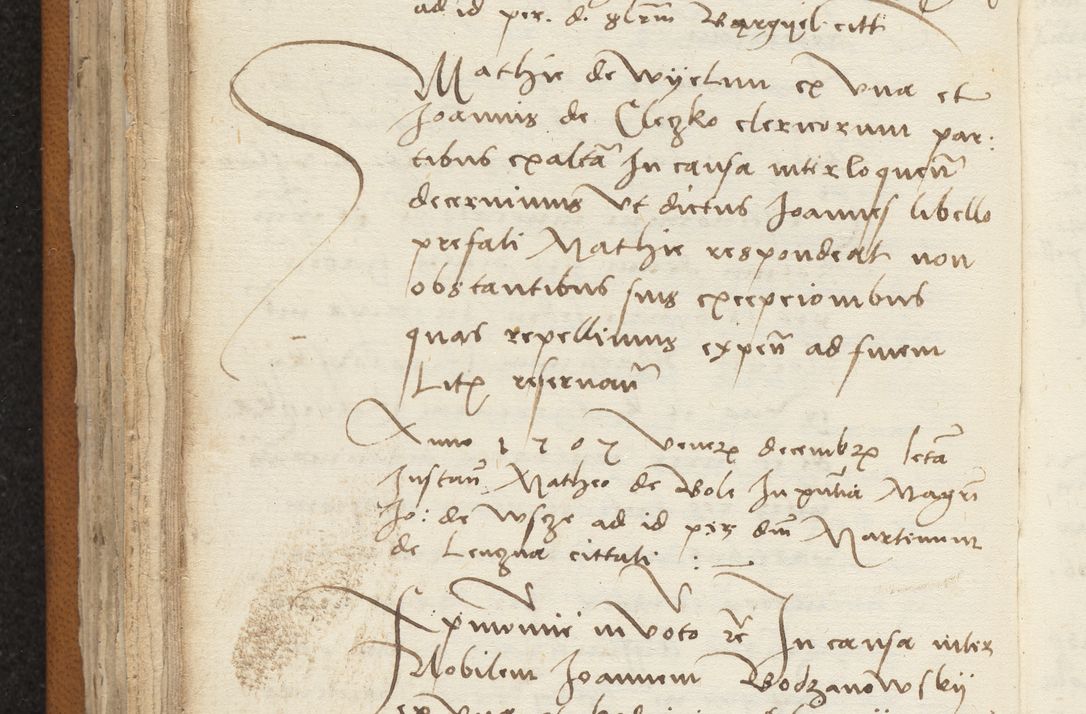 ad id per. d. glrm Bargyel citt
Mathie de Wyelun ex vna et
Joannis de Cleczko clericorum par:
tibus ex alta In causa interloquen
decernimus Vt dictus Joannes libello
prefati Mathie respondeat non
obstantibus suis excepcionibus
quas repellimus expen ad finem
Litis reseruan
Anno 1505 veneris decembris lecta
Instan Matheo de Bole In pntia Magri
Jo: de Wsze ad id per dnm Martinum
de Lenzna cittati :
In causa inter
Nobilem Joannem Bodzanowskij